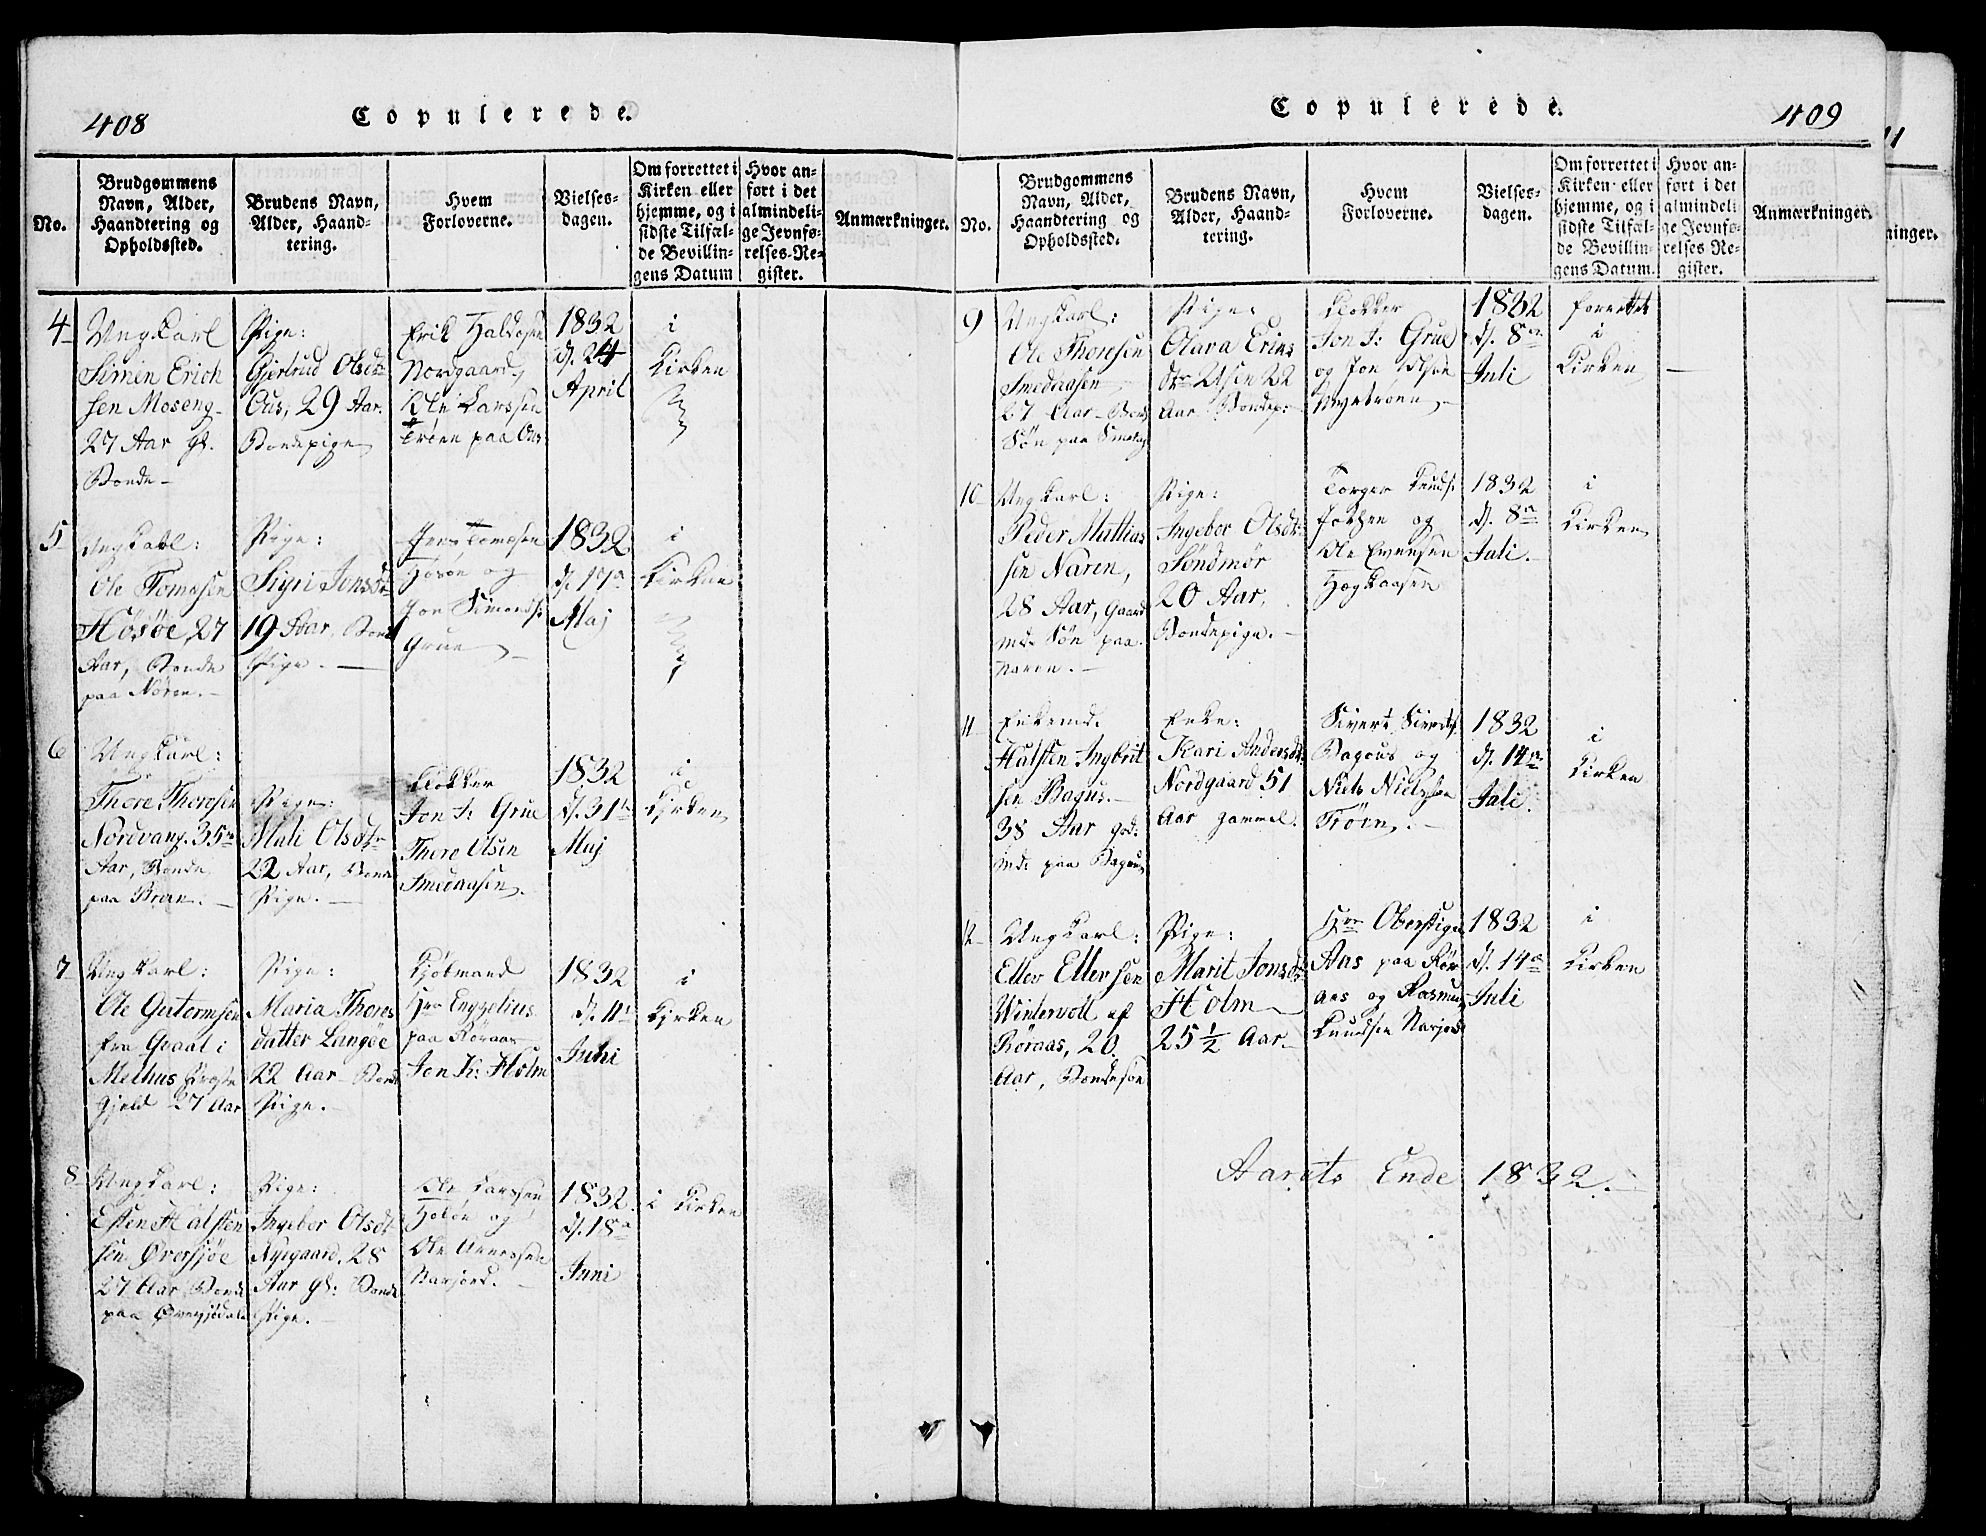 408
Copulerede.
No.
Brudgommens
Navn, Alder,
Haandtering og
Opholdssted.
Brudens Navn,
Alder, Haand-
tering.
Hvem
Forloverne.
Vielses-
dagen.
Om forrettet i
Kirken eller
hjemme, og i
sidste Tilfæl-
de Bevillin-
gens Datum
Hvor an-
ført i det
almindeli-
ge Jevnfø-
relses-Re-
gister.
Anmærkninger.
4
Ungkarl
Simen Erich
sen Moseng
27 Aar gl.
Bonde
Pige:
Gjertrud Olsdtr
Ous, 29 Aar.
Bondepige
Erik Haldosen
Nordgaard,
Ole Larssen
Trøen paa Ous
1832
d. 24
April
i
Kirken
5
Ungkarl:
Ole Tomesen
Hösöe, 27
Aar, Bonde
paa Nören.
Pige:
Sigri Jonsdtr
19 Aar, Bonde
Pige.
Jens Tomesen
og
Jon Simonds:
Grue
1832
d. 17a
Maj
i
Kirken
6
Ungkarl:
Thore Thoresen
Nordvang. 35
Aar, Bonde
paa Broen.
Pige:
Mali Olsdtr
22 Aar, Bonde
Pige.
Klokker
Jon J: Grue
Thore Olsen
Smedaasen.
1832
d. 31te
Maj
i
Kirken
7
Ungkarl:
Ole Gutormsen
fra Graal i
Melhus Præste
Gjeld 27 Aar
Pige:
Maria Thores
datter Langöe
22 Aar Bonde
Pige.
Kjøbmand
Hrr Engzelius
paa Røraas
Jon K: Holm
1832
d. 11te
Juni
i
Kirken
8
Ungkarl:
Esten Halsten
sen Øversjöe
27 Aar Bonde
paa Øversjödalen
Pige:
Ingebor Olsdt
Nysgaard, 28
Aar gl: Bonde
Pige.
Ole Larssen
Holøn og
Ole
Narjord.
1832
d. 18a
Juni
i Kirken
Copulerede.
409
No.
Brudgommens
Navn, Alder,
Haandtering og
Opholdssted.
Brudens Navn,
Alder, Haand-
tering.
Hvem
Forloverne.
Vielses-
dagen.
Om forrettet i
Kirken eller
hjemme, og i
sidste Tilfæl-
de Bevillin-
gens Datum.
Hvor an-
ført i det
almindeli-
ge Jevnfø-
relses Re-
gister.
Anmærkninger.
9
Ungkarl:
Ole Thoresen
Smedaasen
27 Aar Bonde
Søn paa
Pige:
Olava Erics
22
Aar Bondep:
Klokker
Jon J: Grue
og Jon Olsen
Nyetrøen
1832
d. 8de
Juli
forrettet
i
Kirken
10
Ungkarl:
Peder Mathias
sen Naren,
28 Aar, Gaard
mds Søn paa
Naren.
Pige:
Ingebor Olsdt:
Söndmör
20 Aar.
Bondepige.
Torger Knuds:
og
Ole Evensen
Hogkaasen
1832
d. 8a
Juli.
i
Kirken
11
Enkemd.
Halsten Ingbrit
sen Bagus.
38 Aar
md: paa Bagus
Enke:
Kari Andersdt:
Nordgaard 51
Aar gammel.
Sivert Sivertss:
Bagous og
Niels Nielssen
Trøen.
1832
d. 14de
Juli.
i
Kirken
12
Ungkarl:
Ellev Ellevsen
Wintervoll af
Röraas, 20.
Aar, Bondesøn
Pige:
Marit Jonsdt:
Holm
25 1/2 Aar.
Hrr Oberstiger
Aas paa Rør
aas og Rasmus
Knudsen Narjord
1832
d. 14a
Juli
i
Kirken
Aarets Ende 1832.
11
ninger.